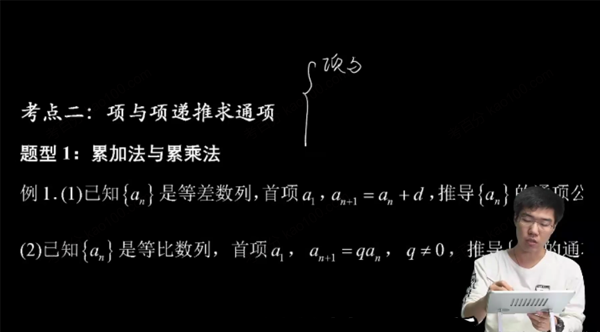 项与
考点二：项与项递推求通项
题型1：累加法与累乘法
例1.(1)已知{aₙ}是等差数列,首项a₁,aₙ₊₁=aₙ+d,推导{aₙ}的通项公
(2)已知{aₙ}是等比数列，首项a₁，aₙ₊₁=qaₙ，q≠0，推导{的通项